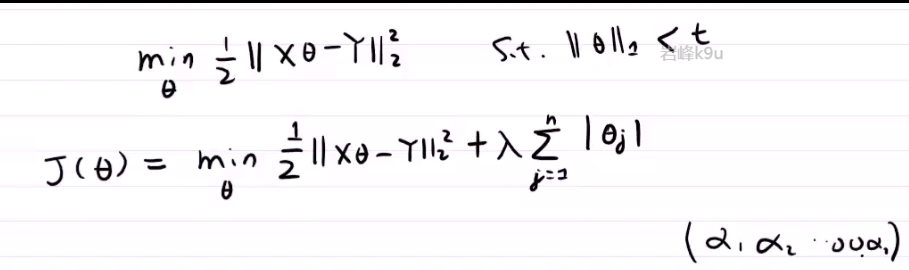 min_θ 1/2 ||Xθ-Y||₂² s.t. ||θ||₁ < t
岩峰k9u
J(θ) = min_θ 1/2 ||Xθ-Y||₂² + λ Σ_{j=1}^n |θj|
(α₁ α₂